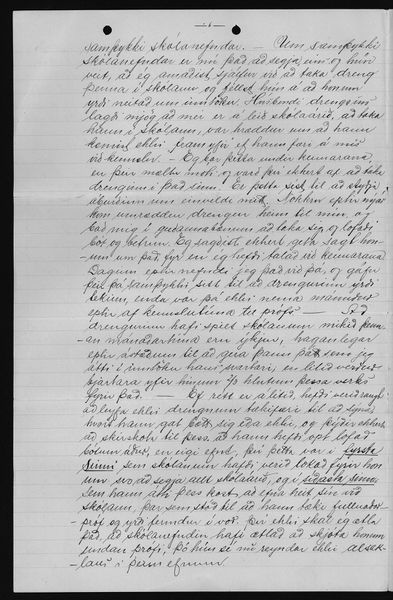 - 6 -
samþykki skólanefndar. — Um samþykki
skólanefndar er nú það að segja, um og hún
veit, að eg amaðist sjálfur við að taka dreng
þenna í skólann og félst hún á að honum
yrði neitað um inntöku. Hinsvegar drengurinn
lagði mjög að mér er á leið skólaárið, að taka
hann í skólann, var hræddur um að hann
kæmist ekki fram yfir ef hann færi á mis
við kenslu. — Eg bar þetta undir kennarana,
en þeir mæltu móti, og varð því ekkert af að taka
drenginn í það sinn. Er þetta sízt til að styðja
áburðinn um einveldi mitt. Nokkru eptir nýár
kom umræddur drengur heim til mín, og
bað mig í guðannabænum að taka sig og lofaði
bót og betrun. Eg sagðist ekkert geta sagt hon-
um um það, fyr en eg hefði talað við kennarana
Daginn eptir nefndi jeg það við þá, og gáfu
þeir þá samþykki sitt til að drengurinn yrði
tekinn, enda var þá ekki nema mánuður
eptir af kenslutíma til prófs — Að
drengurinn hafi spilt skólanum mikið þenn-
an mánaðartíma eru ýkjur,
eptir ástæðum til að gera þann þátt sem jeg
átti í inntöku hans svartari, en lítið verður
bjartara yfir hinum 7/8 hlutum þessa verks
fyrir það. — Ef rétt er á litið, hefði verið rangt
að leyfa ekki drengnum tækifæri til að sýna,
hvort hann gat bætt sig eða ekki, og þýðir ekkert
að skírskota til þess, að hann hefði opt lofað
bótum áður, en eigi efnt, því þetta var í fyrsta
sinni sem skólanum hafði verið lokað fyrir hon-
um svo að segja allt skólaárið, og í síðasta sinni
sem hann átti þess kost, að efna heit sín við
skólann, þar sem stóð til að hann tæki fullnaðar-
próf og yrði fermdur í vor. því ekki skal eg ætla
það, að skólanefndin hafi ætlað að skjóta honum
undan prófi, þó hún sé nú reyndar ekki alsak-
laus í þeim efnum